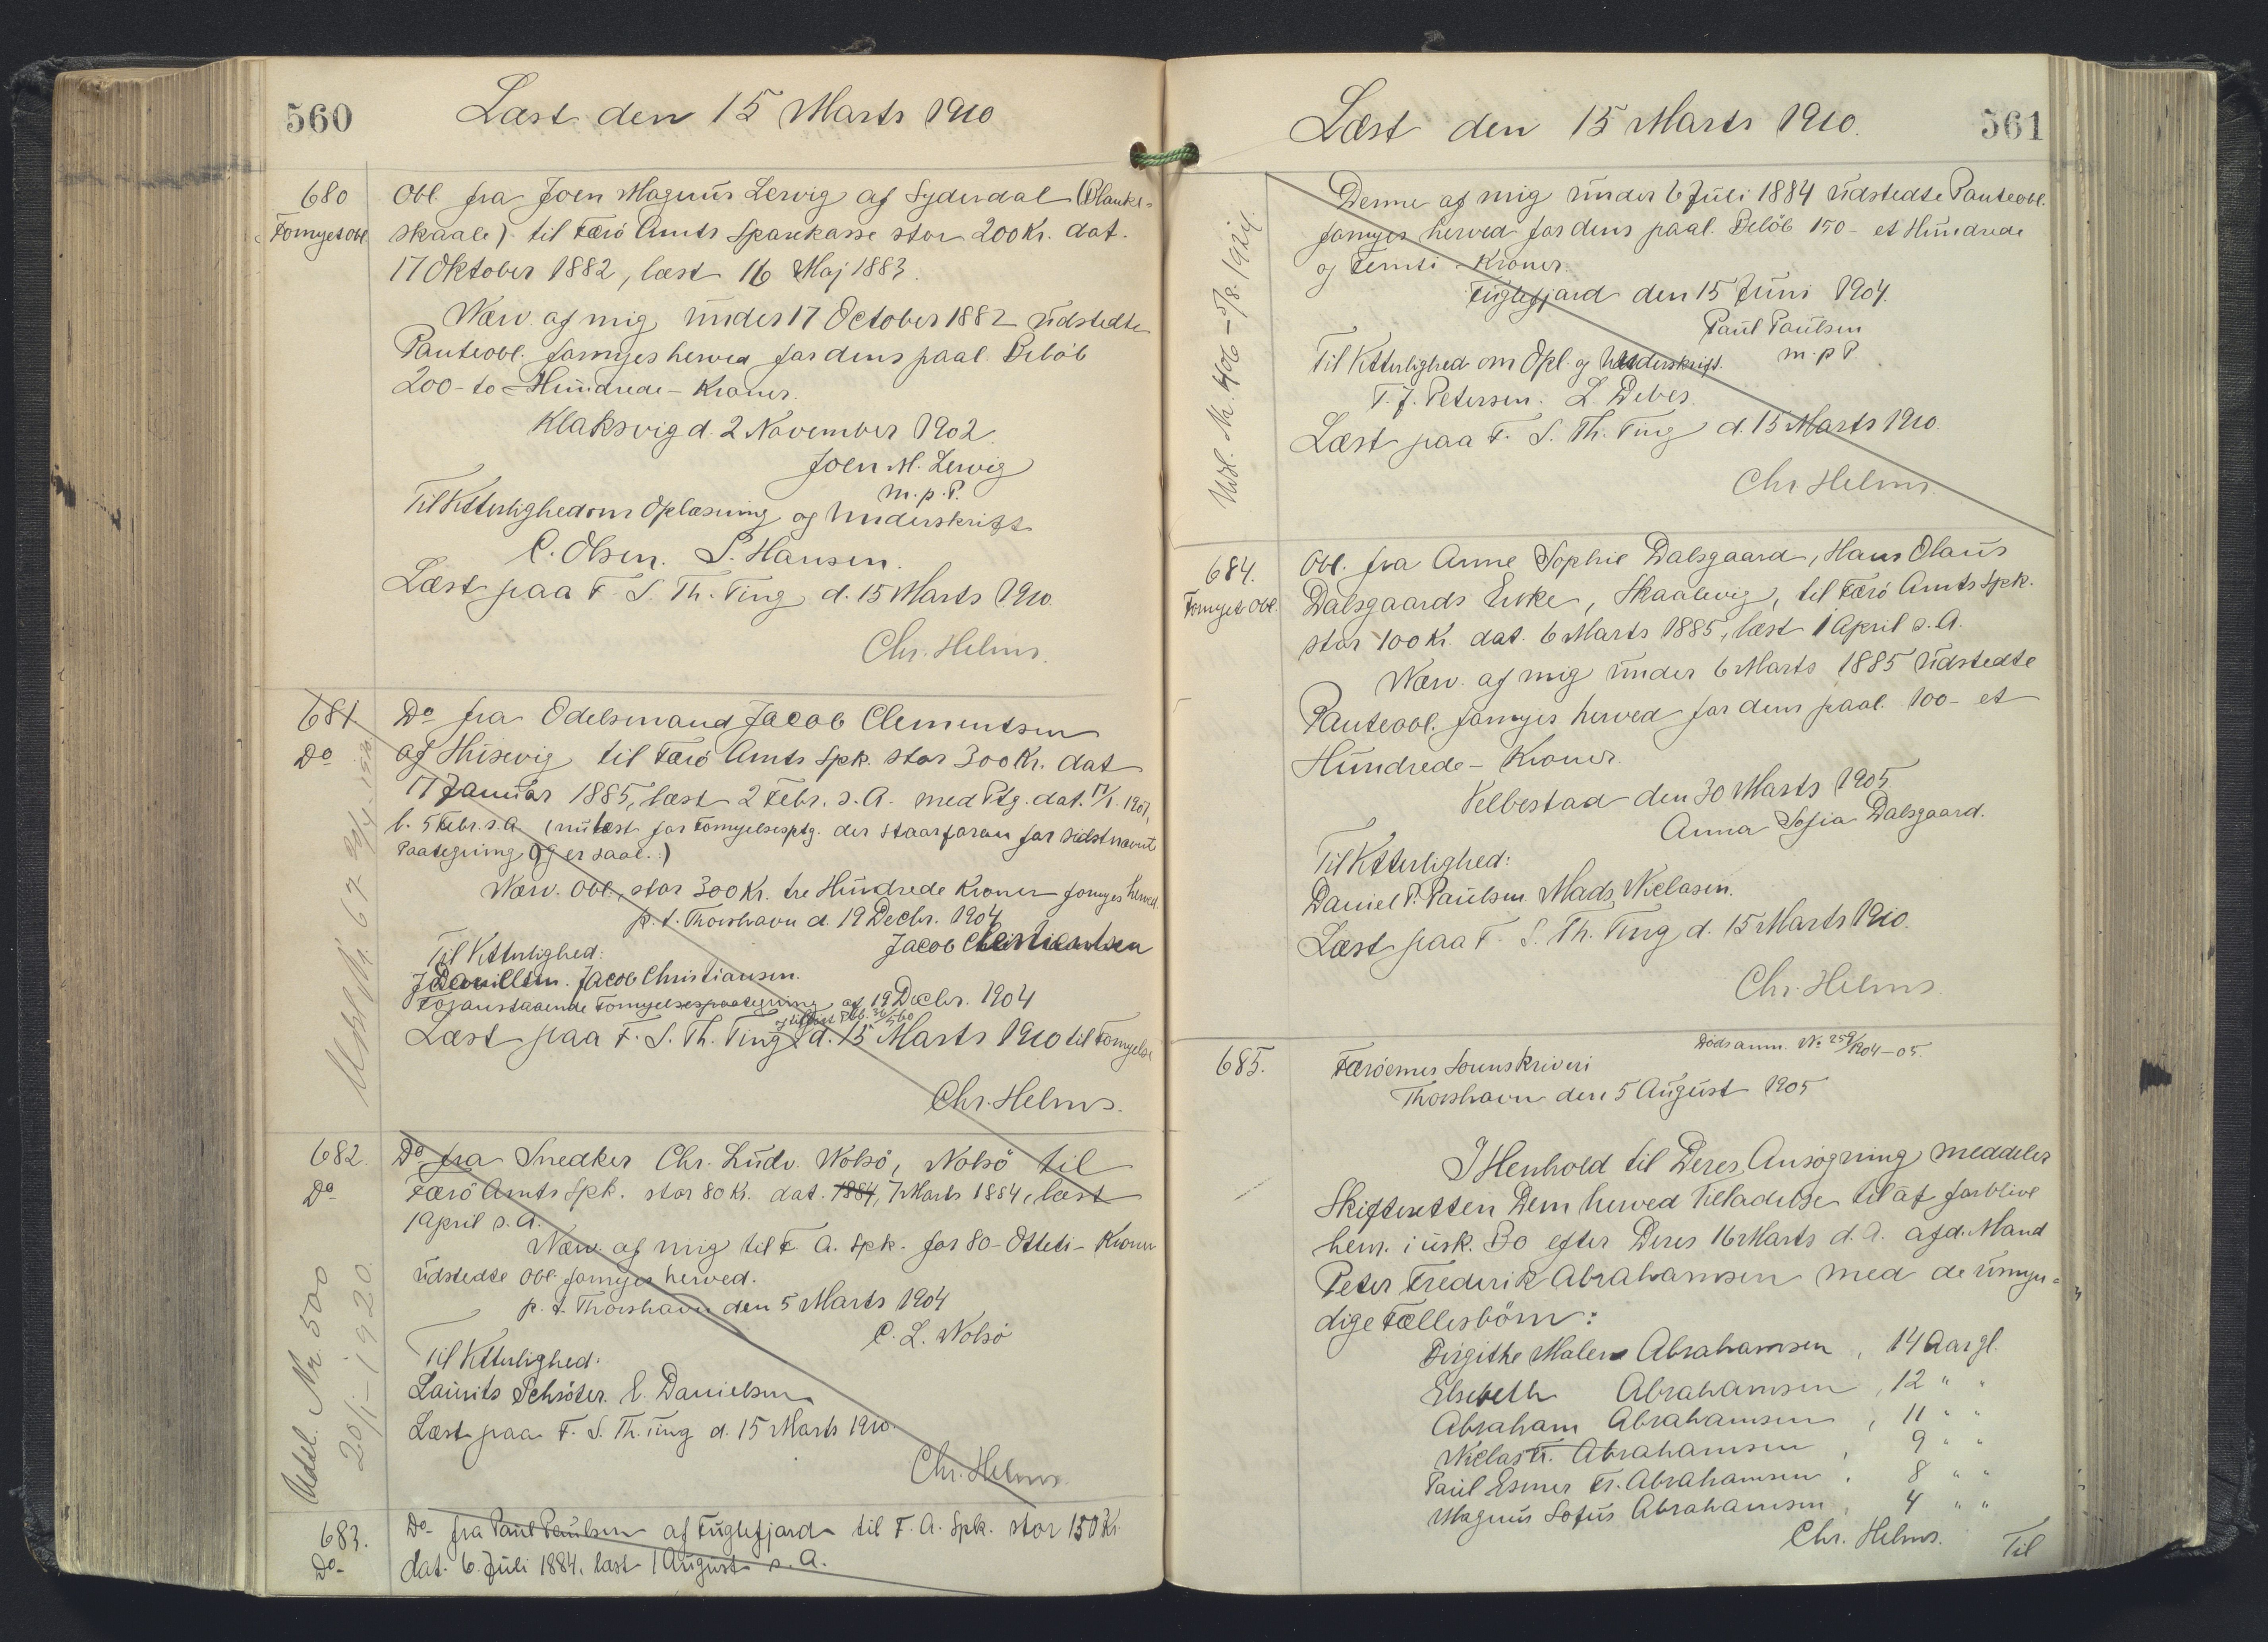 560
Læst den 15 Marts 1910
680
Fornyet Obl.
Obl. fra Joen Magnus Lervig af Syderdal (Blanke-
skaale) til Færö Amts Sparekasse stor 200 Kr. dat.
17 Oktober 1882, læst 16 Maj 1883.
Nærv. af mig under 17 October 1882 udstedte
Panteobl. fornyes herved for dens paal. Belöb
200 - to - Hundrede - Kroner.
Klaksvig d. 2 November 1902.
Joen M. Lervig
m. p. P.
Til Vitterlighed om Oplæsning og Underskrift
C. Olsen. S. Hansen.
Læst paa F. S. Th. Ting d. 15 Marts 1910.
Chr. Helms.
681
Do
Do fra Odelsmand Jacob Clementsen
af Husevig til Færö Amts Spk. stor 300 Kr. dat
17 Januar 1885, læst 2 Febr. s. A. med Ptg. dat. 17/1. 1901,
l. 5 Febr. s. A. (nu læst for Fornyelsesptg. der staar foran for sidstnævnte
Paategning og er saal.:)
Nærv. Obl., stor 300 Kr. tre Hundrede Kroner fornyes herved.
p. t. Thorshavn d. 19 Decbr. 1904
Jacob Clementsen
Til Vitterlighed:
J Danielsen. Jacob Christiansen.
Foranstaaende Fornyelsespaategning af 19 Decbr. 1904
Læst paa F. S. Th. Ting d. 15 Marts 1910 til Fornyelse
Chr. Helms.
682.
Do
Udsl. Nr. 500
20/1 - 1920.
Do fra Snedker Chr. Ludv. Nolsö, Nolsö til
Færö Amts Spk. stor 80 Kr. dat. 1884, 7 Marts 1884, læst
1 April s. A.
Nærv. af mig til F. A. Spk. for 80 - Otteti - Kroner
udstedte Obl. fornyes herved.
p. t. Thorshavn den 5 Marts 1904
C. L. Nolsö
Til Vitterlighed:
Lauits Schröter. E. Danielsen
Læst paa F. S. Th. Ting d. 15 Marts 1910.
Chr. Helms.
683.
Do
Do fra Paul Paulsen af Fuglefjord til F. A. Spk. stor 150 Kr.
dat. 6. Juli 1884, læst 1 August s. A.
Læst den 15 Marts 1910.
561
Denne af mig under 6 Juli 1884 udstedte Panteobl.
fornyes herved for dens paal. Belöb 150 - et Hundrede
og Femti - Kroner.
Fuglefjord den 15 Juni 1904.
Paul Paulsen
m. p P.
Til Vitterlighed om Opl. og Underskrift.
T. J. Petersen. L. Debes.
Læst paa F. S. Th. Ting d. 15 Marts 1910.
Chr Helms.
684.
Fornyet Obl.
Obl. fra Anne Sophie Dalsgaard, Hans Olaus
Dalsgaards Enke, Skaalevig, til Færö Amts Spk.
stor 100 Kr. dat. 6 Marts 1885, læst 1 April s. A.
Nærv. af mig under 6 Marts 1885 udstedte
Panteobl. fornyes herved for dens paal. 100 - et
Hundrede - Kroner.
Velbestad den 30 Marts 1905.
Anna Sofia Dalsgaard.
Til Vitterlighed:
Daniel P. Paulsen Mads Niclasen.
Læst paa F. S. Th. Ting d. 15 Marts 1910.
Chr. Helms.
685.
Dödsanm. No 259/1904-05.
Færöernes Sorenskriveri
Thorshavn den 5 August 1905
I Henhold til Deres Ansögning meddeler
Skifteretten Dem herved Tilladelse til at forblive
hens. i usk. Bo efter Deres 16 Marts d. A. afd. Mand
Peter Frederik Abrahamsen med de umyn-
dige Fællesbörn:
Birgithe Malene Abrahamsen, 14 Aar gl.
Elsebeth Abrahamsen, 12 " "
Abraham Abrahamsen, 11 " "
Niclas Fr. Abrahamsen, 9 " "
Paul Esmer Fr. Abrahamsen, 8 " "
Magnus Sofus Abrahamsen, 4 " "
Chr. Helms.
Til